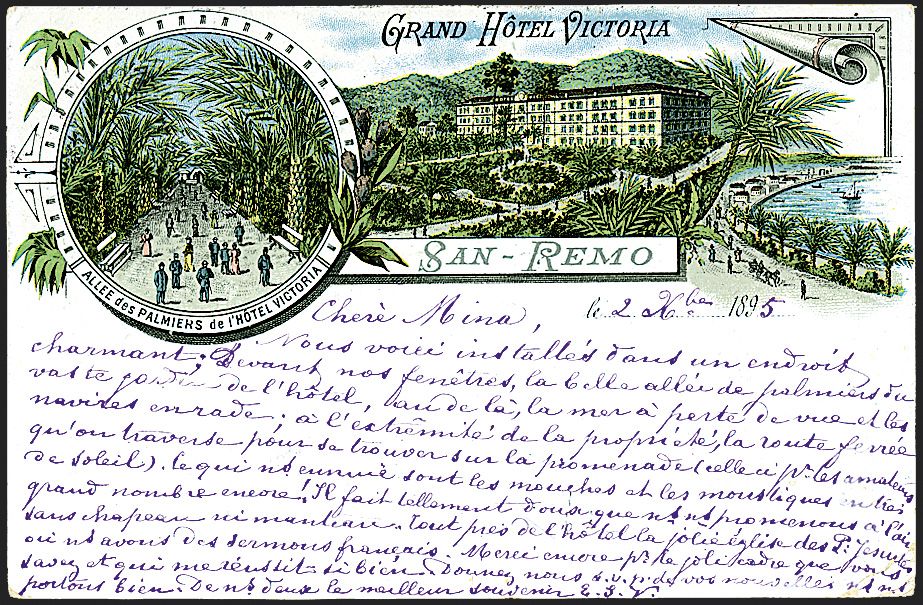 GRAND HÔTEL VICTORIA
SAN-REMO
ALLÉE des PALMIERS de l'HÔTEL VICTORIA
Chère Mina,
le 2 Xbre 1895
Nous voici installés dans un endroit
charmant. Devant nos fenêtres, la belle allée de palmiers du
vaste jardin de l'hôtel, au de là, la mer à perte de vue et les
navires en rade; à l'extrêmité de la propriété, la route ferrée
qu'on traverse pour se trouver sur la promenade (celle ci pr. les amateurs
de soleil). Ce qui ns ennuie sont les mouches et les moustiques en très
grand nombre encore! Il fait tellement doux que ns ns promenons à l'
sans chapeau ni manteau. Tout près de l'hôtel la jolie église des P. Jesuites
où ns avons des sermons français. Merci encore pr. le joli cadre que vous
savez et qui me réussit si bien. Donnez nous s.v.p. de vos nouvelles ns ns
portons bien. De ns deux le meilleur souvenir E. S. V.